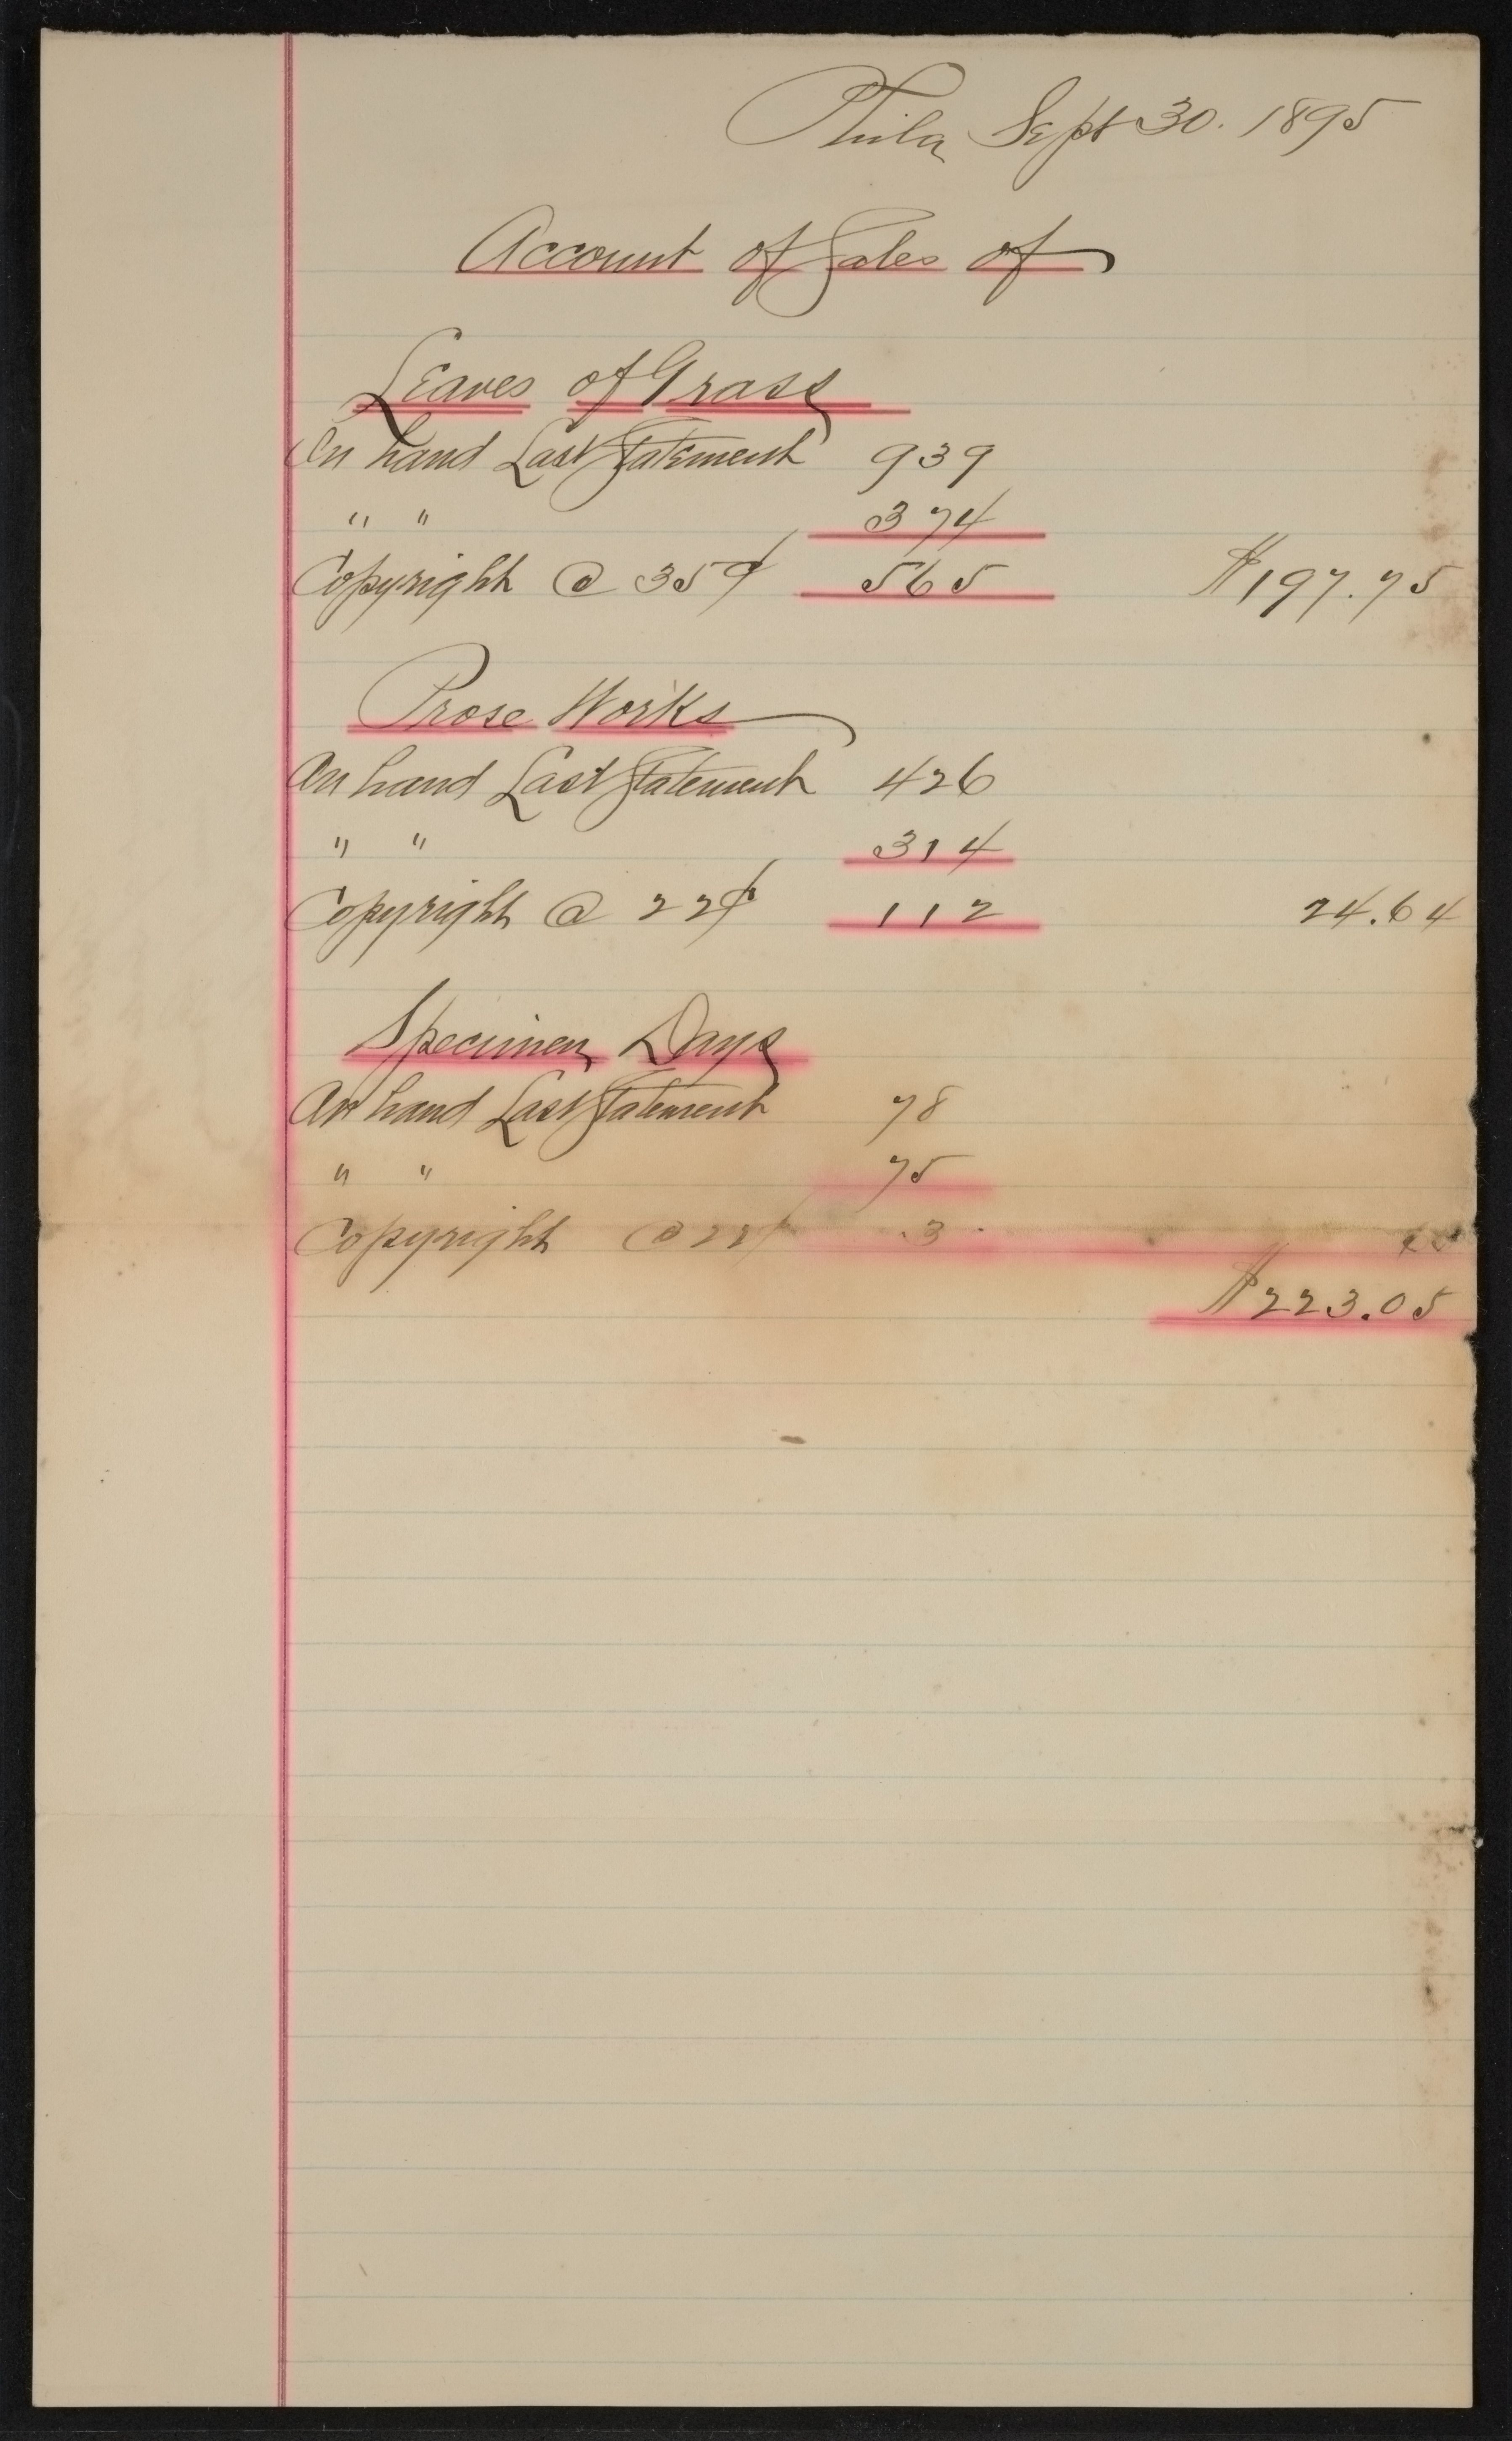 Phila Sept 30. 1895
Account of Sales of
Leaves of Grass
On hand Last Statement 939
" " 374
Copyright @ 35¢ 565 $197.75
Prose Works
On hand Last Statement 426
" " 314
Copyright @ 22¢ 112 24.64
Specimen Days
On hand Last Statement 78
" " 75
Copyright @ 22¢ 3
$223.05